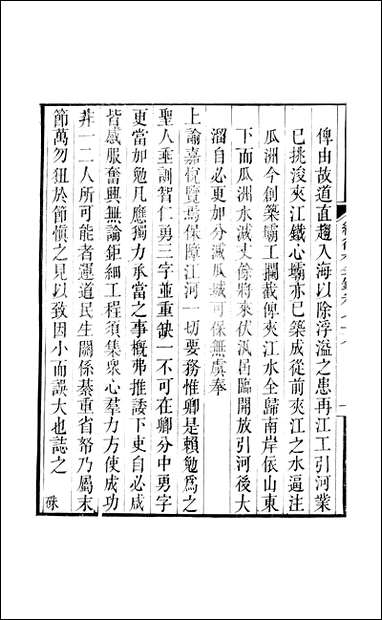 俾由故道直趨入海以除浮溢之患再江工引河業
已挑浚夾江鐵心壩亦已築成從前夾江之水逼注
瓜洲今創築壩工攔截俾夾江水全歸南岸依山東
下而瓜洲水減丈餘將來伏汛屆臨開放引河後大
溜自必更加分減瓜城可保無虞奉
上諭嘉悅覽焉保障江河一切要務惟卿是賴勉爲之
聖人垂訓智仁勇三字並重缺一不可在卿分中勇字
更當加勉凡應獨力承當之事概弗推諉下吏自必咸
皆感服奮興無論鉅細工程須集衆心羣力方使成功
非一二人所可能者運道民生關係綦重省帑乃屬末
節萬勿狃於節愼之見以致因小而誤大也誌之
硃